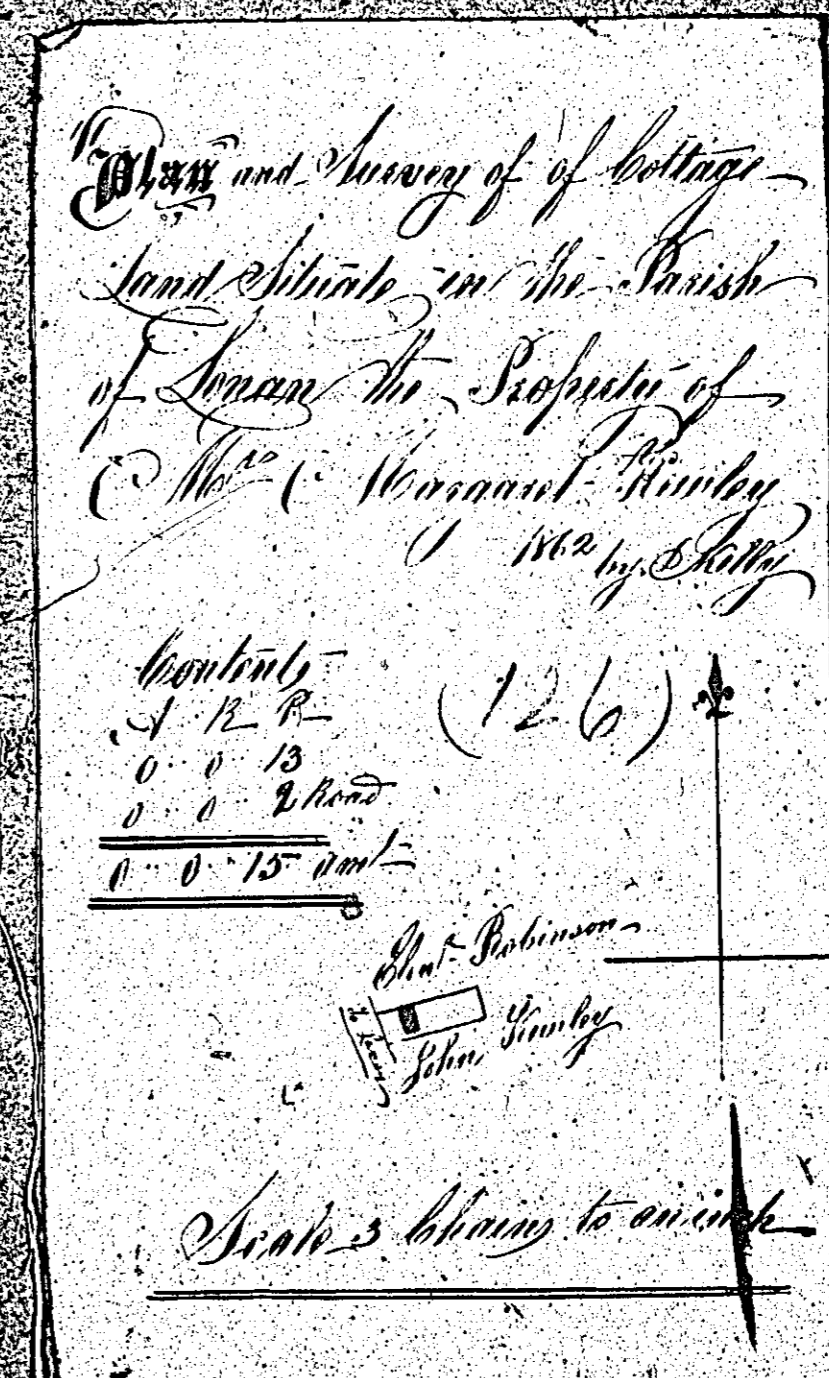 Plan and Survey of of Cottage
land Situate in the Parish
of Lonan the Property of
Mrs Margaret
1862 by Kelly
Contents
A R P
0 0 13
0 0 2 Road
0 0 15 amt
(126)
Robinson
John
Scale 3 Chains to an inch